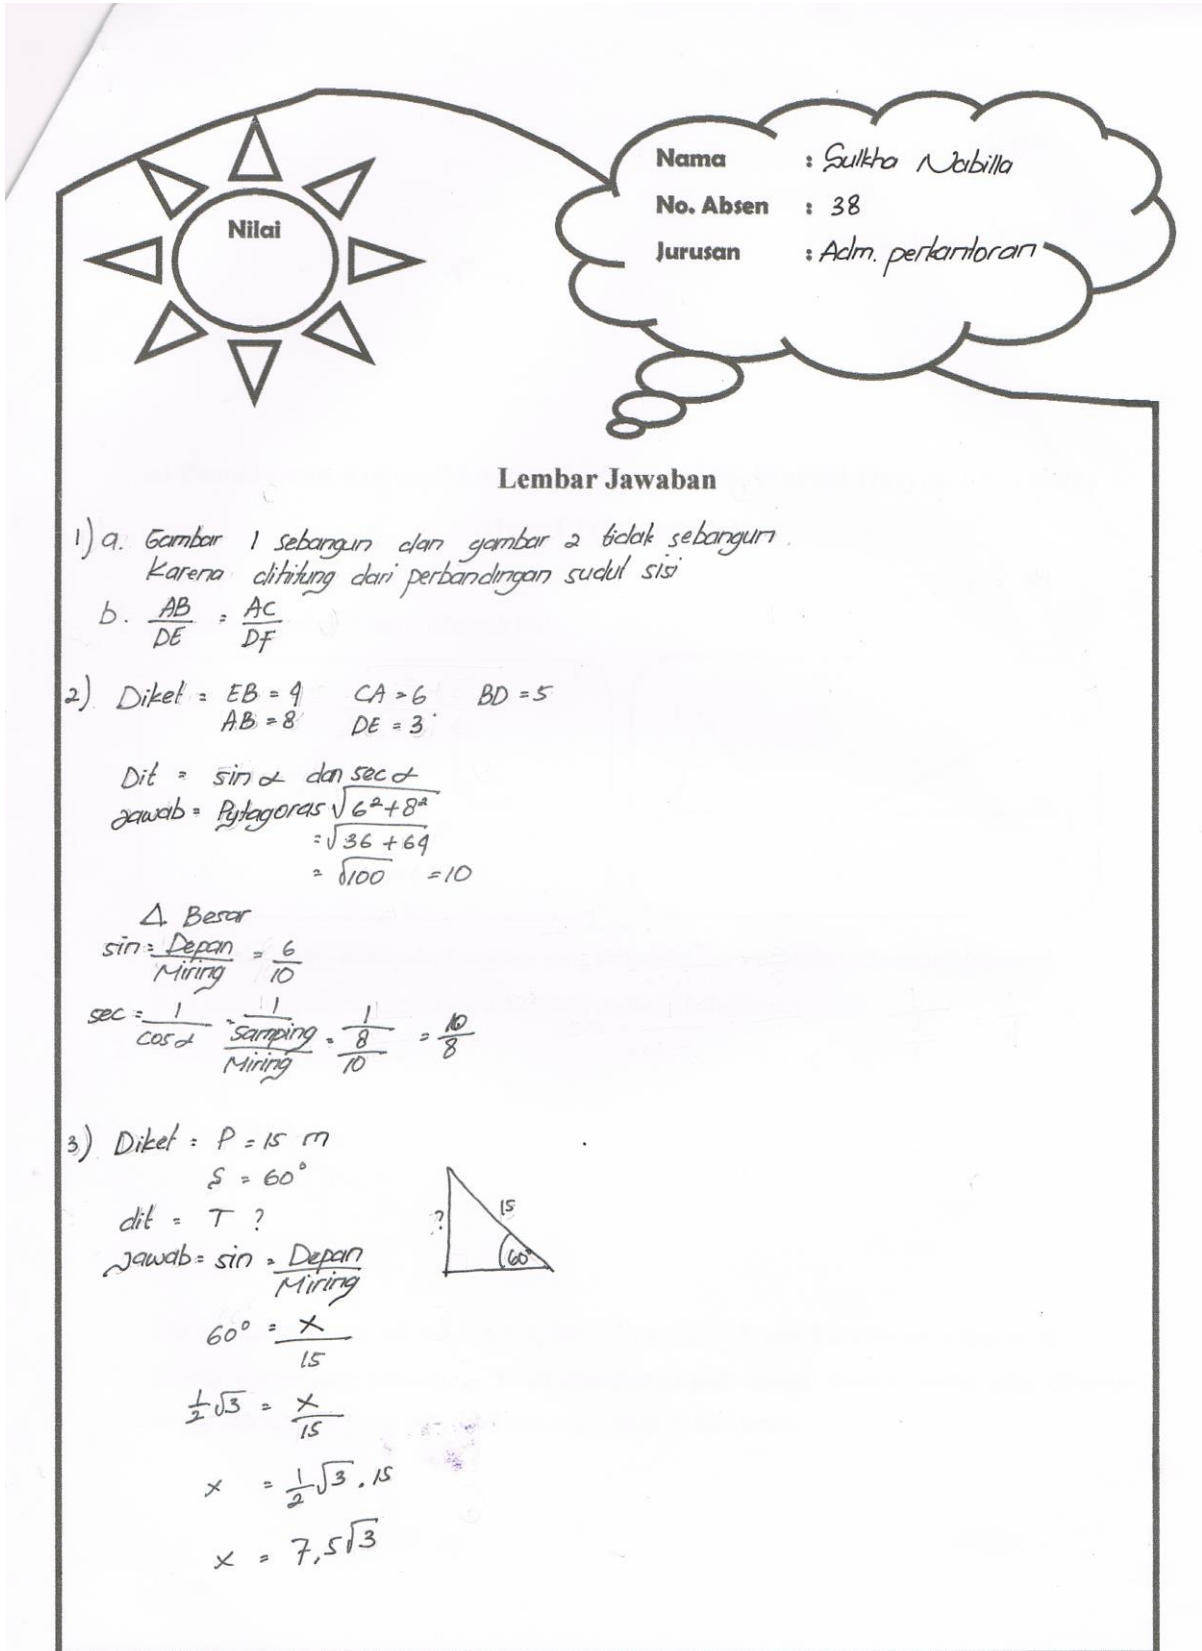 Nilai
Nama : Sulkha Nabilla
No. Absen : 38
Jurusan : Adm. perkantoran
Lembar Jawaban
1) a. Gambar 1 sebangun dan gambar 2 tidak sebangun.
Karena dihitung dari perbandingan sudut sisi
b. AB/DE = AC/DF
2) Diket = EB = 4 CA = 6 BD = 5
AB = 8 DE = 3
Dit = sin α dan sec α
Jawab = Pytagoras √6²+8²
= √36 + 64
= √100 = 10
Δ Besar
sin = Depan/Miring = 6/10
sec = 1/cos α = 1/(Samping/Miring) = 1/(8/10) = 10/8
3) Diket = P = 15 m
S = 60°
dit = T ?
Jawab = sin = Depan/Miring
? 15 60°
60° = x/15
1/2√3 = x/15
x = 1/2√3 . 15
x = 7,5√3